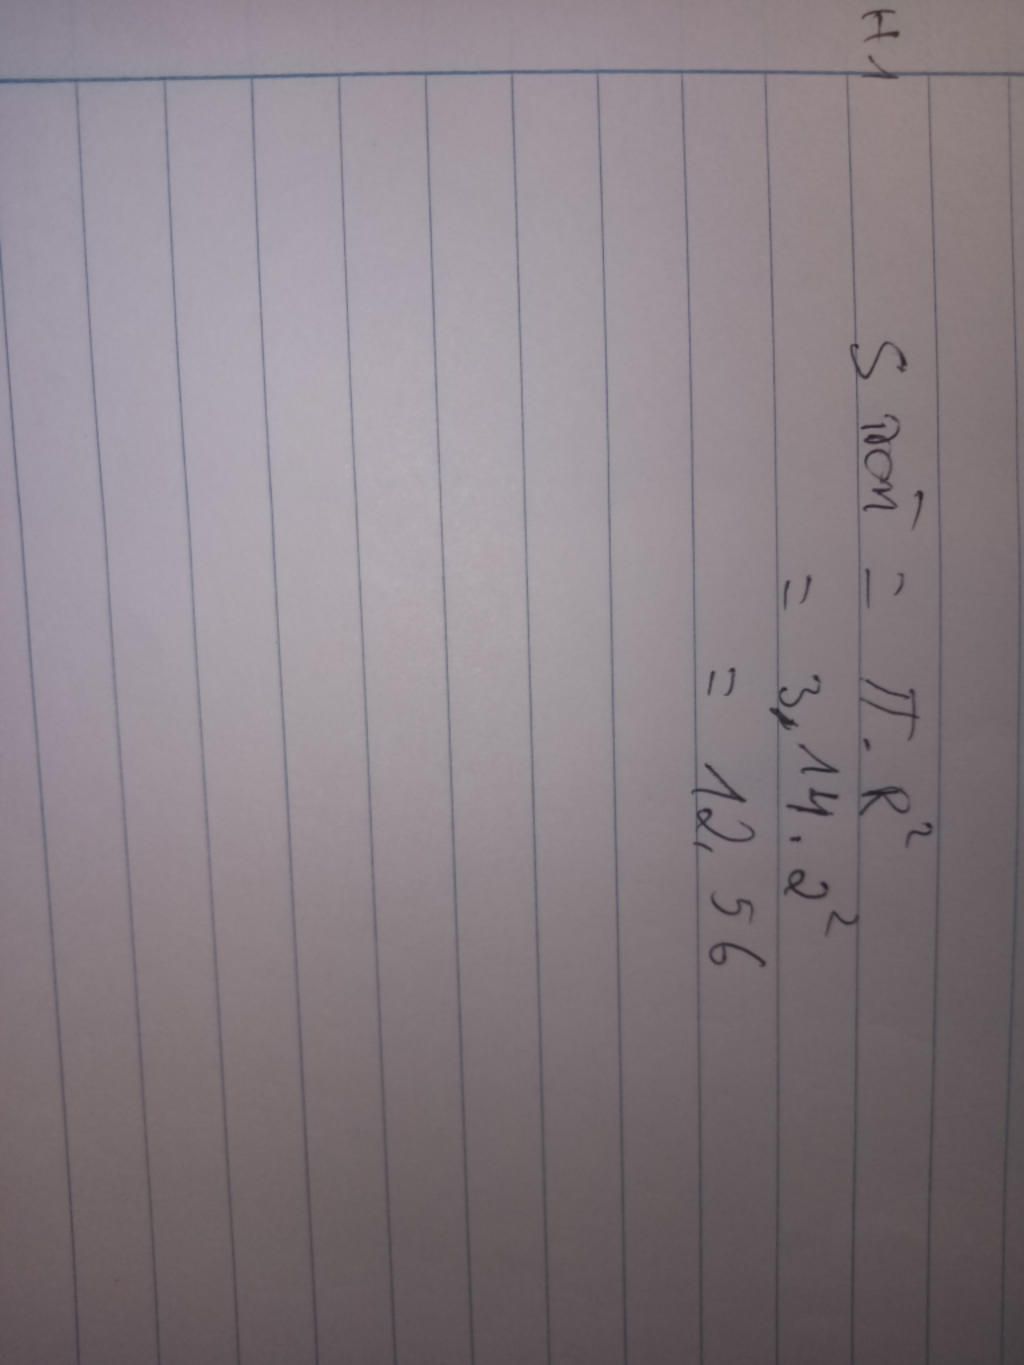 H1
S tròn = π. R²
= 3,14. 2²
= 12,56